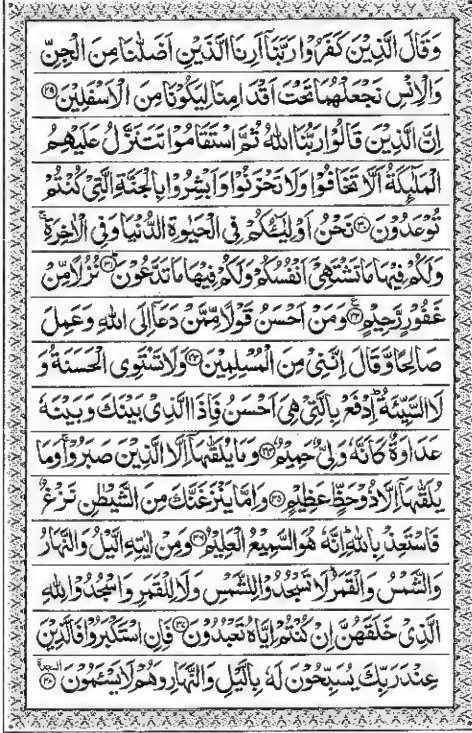 وَقَالَ الَّذِيْنَ كَفَرُوْا رَبَّنَاۤ اَرِنَا الَّذَيْنِ اَضَلّٰنَا مِنَ الْجِنِّ
وَالْاِنْسِ نَجْعَلْهُمَا تَحْتَ اَقْدَامِنَا لِيَكُوْنَا مِنَ الْاَسْفَلِيْنَ ۝۲۹
اِنَّ الَّذِيْنَ قَالُوْا رَبُّنَا اللّٰهُ ثُمَّ اسْتَقَامُوْا تَتَنَزَّلُ عَلَيْهِمُ
الْمَلٰٓئِكَةُ اَلَّا تَخَافُوْا وَلَا تَحْزَنُوْا وَاَبْشِرُوْا بِالْجَنَّةِ الَّتِيْ كُنْتُمْ
تُوْعَدُوْنَ ۝۳۰ نَحْنُ اَوْلِيٰٓؤُكُمْ فِي الْحَيٰوةِ الدُّنْيَا وَفِي الْاٰخِرَةِ ۚ
وَلَكُمْ فِيْهَا مَا تَشْتَهِيْۤ اَنْفُسُكُمْ وَلَكُمْ فِيْهَا مَا تَدَّعُوْنَ ۝۳۱ نُزُلًا مِّنْ
غَفُوْرٍ رَّحِيْمٍ ۝۳۲ وَمَنْ اَحْسَنُ قَوْلًا مِّمَّنْ دَعَاۤ اِلَى اللّٰهِ وَعَمِلَ
صَالِحًا وَّقَالَ اِنَّنِيْ مِنَ الْمُسْلِمِيْنَ ۝۳۳ وَلَا تَسْتَوِي الْحَسَنَةُ وَ
لَا السَّيِّئَةُ ؕ اِدْفَعْ بِالَّتِيْ هِيَ اَحْسَنُ فَاِذَا الَّذِيْ بَيْنَكَ وَبَيْنَهٗ
عَدَاوَةٌ كَاَنَّهٗ وَلِيٌّ حَمِيْمٌ ۝۳۴ وَمَا يُلَقّٰىهَاۤ اِلَّا الَّذِيْنَ صَبَرُوْا ۚ وَمَا
يُلَقّٰىهَاۤ اِلَّا ذُوْ حَظٍّ عَظِيْمٍ ۝۳۵ وَاِمَّا يَنْزَغَنَّكَ مِنَ الشَّيْطٰنِ نَزْغٌ
فَاسْتَعِذْ بِاللّٰهِ ؕ اِنَّهٗ هُوَ السَّمِيْعُ الْعَلِيْمُ ۝۳۶ وَمِنْ اٰيٰتِهِ الَّيْلُ وَالنَّهَارُ
وَالشَّمْسُ وَالْقَمَرُ ؕ لَا تَسْجُدُوْا لِلشَّمْسِ وَلَا لِلْقَمَرِ وَاسْجُدُوْا لِلّٰهِ
الَّذِيْ خَلَقَهُنَّ اِنْ كُنْتُمْ اِيَّاهُ تَعْبُدُوْنَ ۝۳۷ فَاِنِ اسْتَكْبَرُوْا فَالَّذِيْنَ
عِنْدَ رَبِّكَ يُسَبِّحُوْنَ لَهٗ بِالَّيْلِ وَالنَّهَارِ وَهُمْ لَا يَسْـَٔمُوْنَ ۝۳۸ السجدة